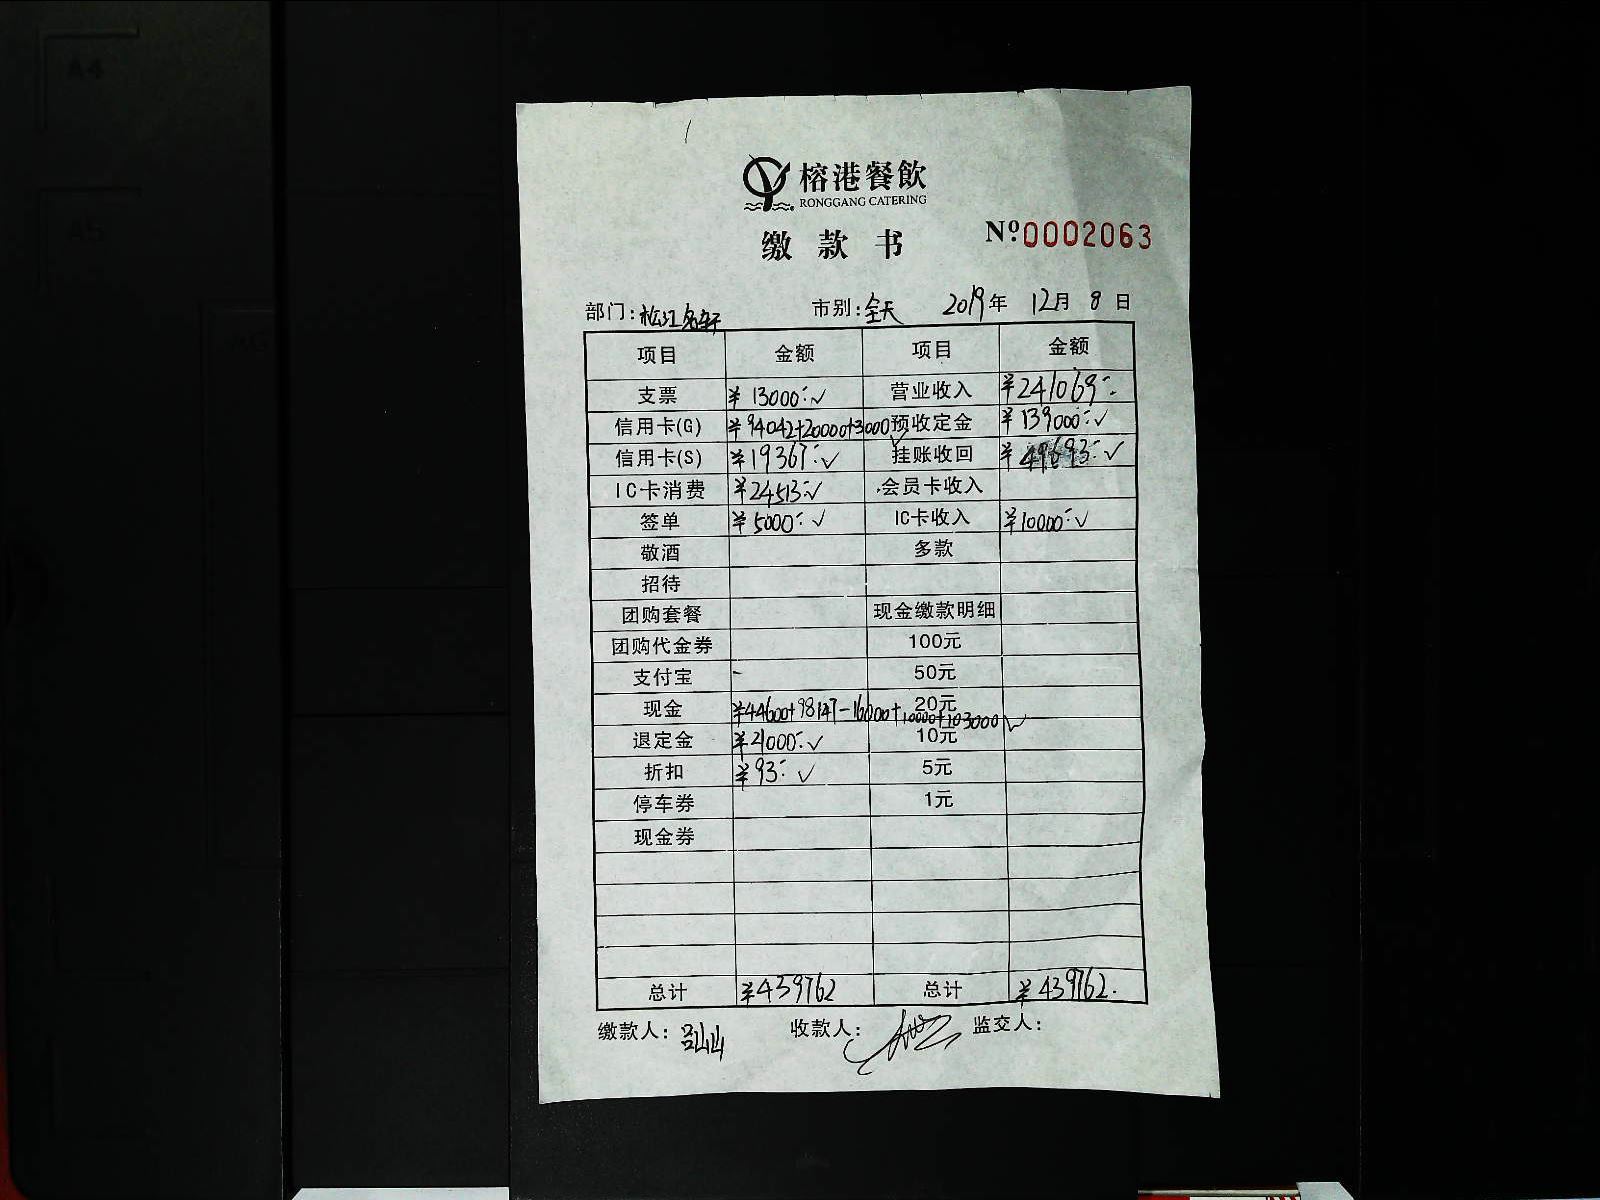 榕港餐飲
RONGGANG CATERING
缴款书
Nº0002063
部门:松江名轩 市别:全天 2019年 12月 8日
项目 金额 项目 金额
支票 ¥13000.- ✓ 营业收入 ¥241069.-
信用卡(G) ¥94042+20000+3000 ✓ 预收定金 ¥139000.- ✓
信用卡(S) ¥19367.- ✓ 挂账收回 ¥49693.- ✓
IC卡消费 ¥24513.- ✓ 会员卡收入
签单 ¥5000.- ✓ IC卡收入 ¥10000.- ✓
敬酒 多款
招待
团购套餐 现金缴款明细
团购代金券 100元
支付宝 - 50元
现金 ¥44600+98147-16000+10000+103000 ✓ 20元
退定金 ¥21000.- ✓ 10元
折扣 ¥93.- ✓ 5元
停车券 1元
现金券
总计 ¥439762 总计 ¥439762.
缴款人: 吕山山 收款人: 监交人: